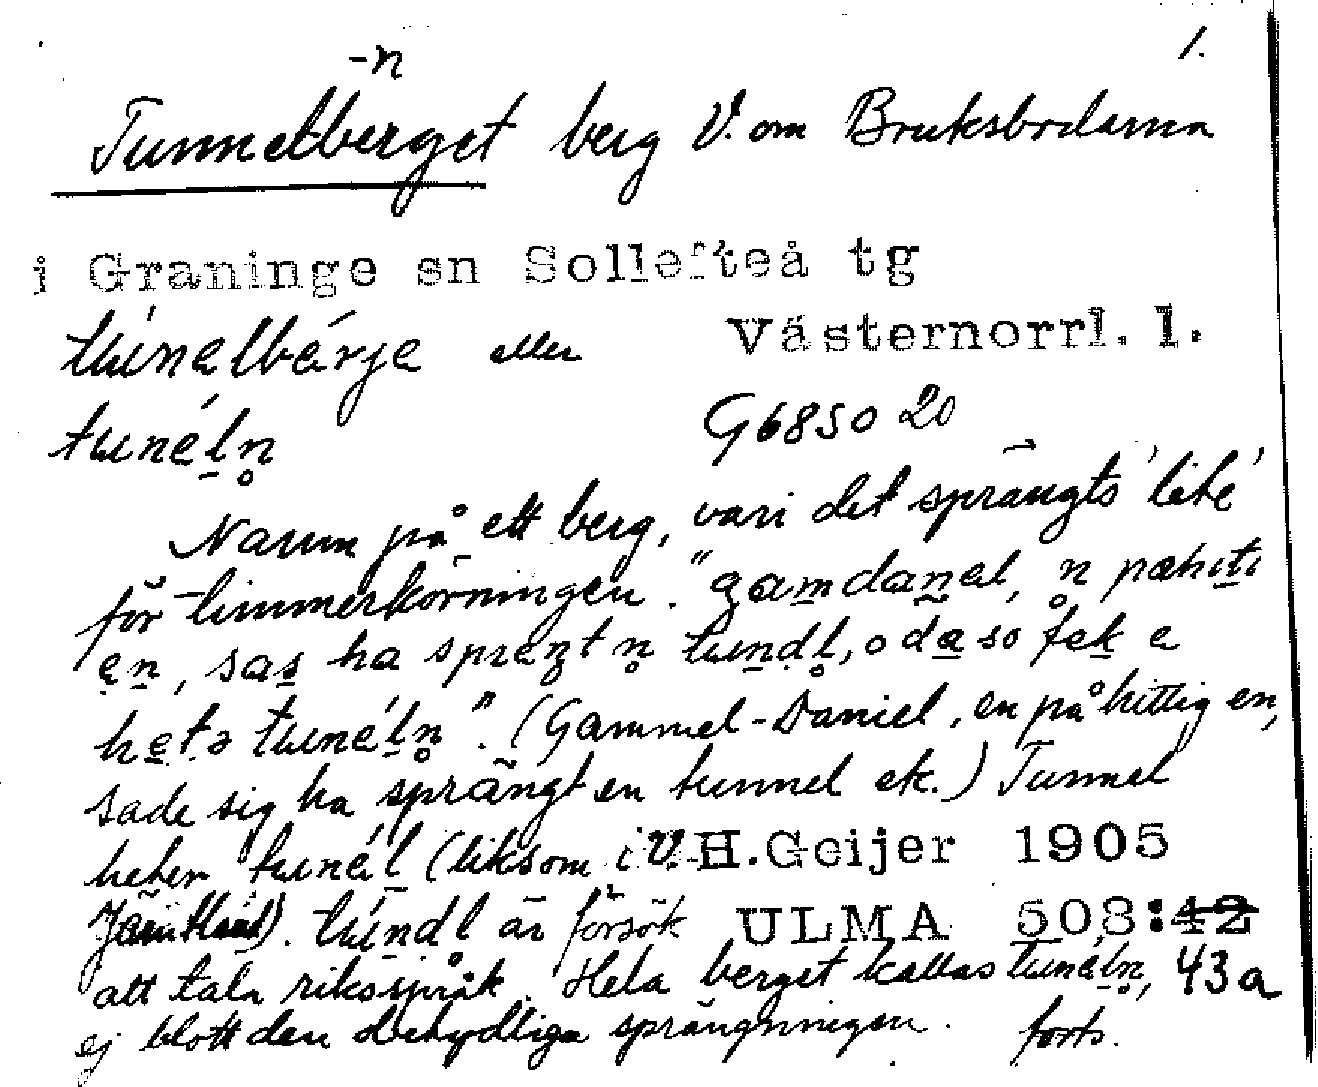 -n 1.
Tunnelberget berg V. om Bruksbodarna
i Graninge sn Sollefteå tg
tunelbärje eller Västernorrl. l.
tunéln G6850 20
Namn på ett berg, vari det sprängts 'lite'
för timmerkörningen. "gamdanel, n pæhiti
en, sas ha spreŋt n tundl, o da so fek e
heta tunéln". (Gammel-Daniel, en påhittig en,
sade sig ha sprängt en tunnel etc.) Tunnel
heter tunél (liksom i V. H. Geijer 1905
Jämtland). túndl är försök ULMA 508:42
att tala riksspråk. Hela berget kallas tunéln, 43a
ej blott den obetydliga sprängningen. forts.